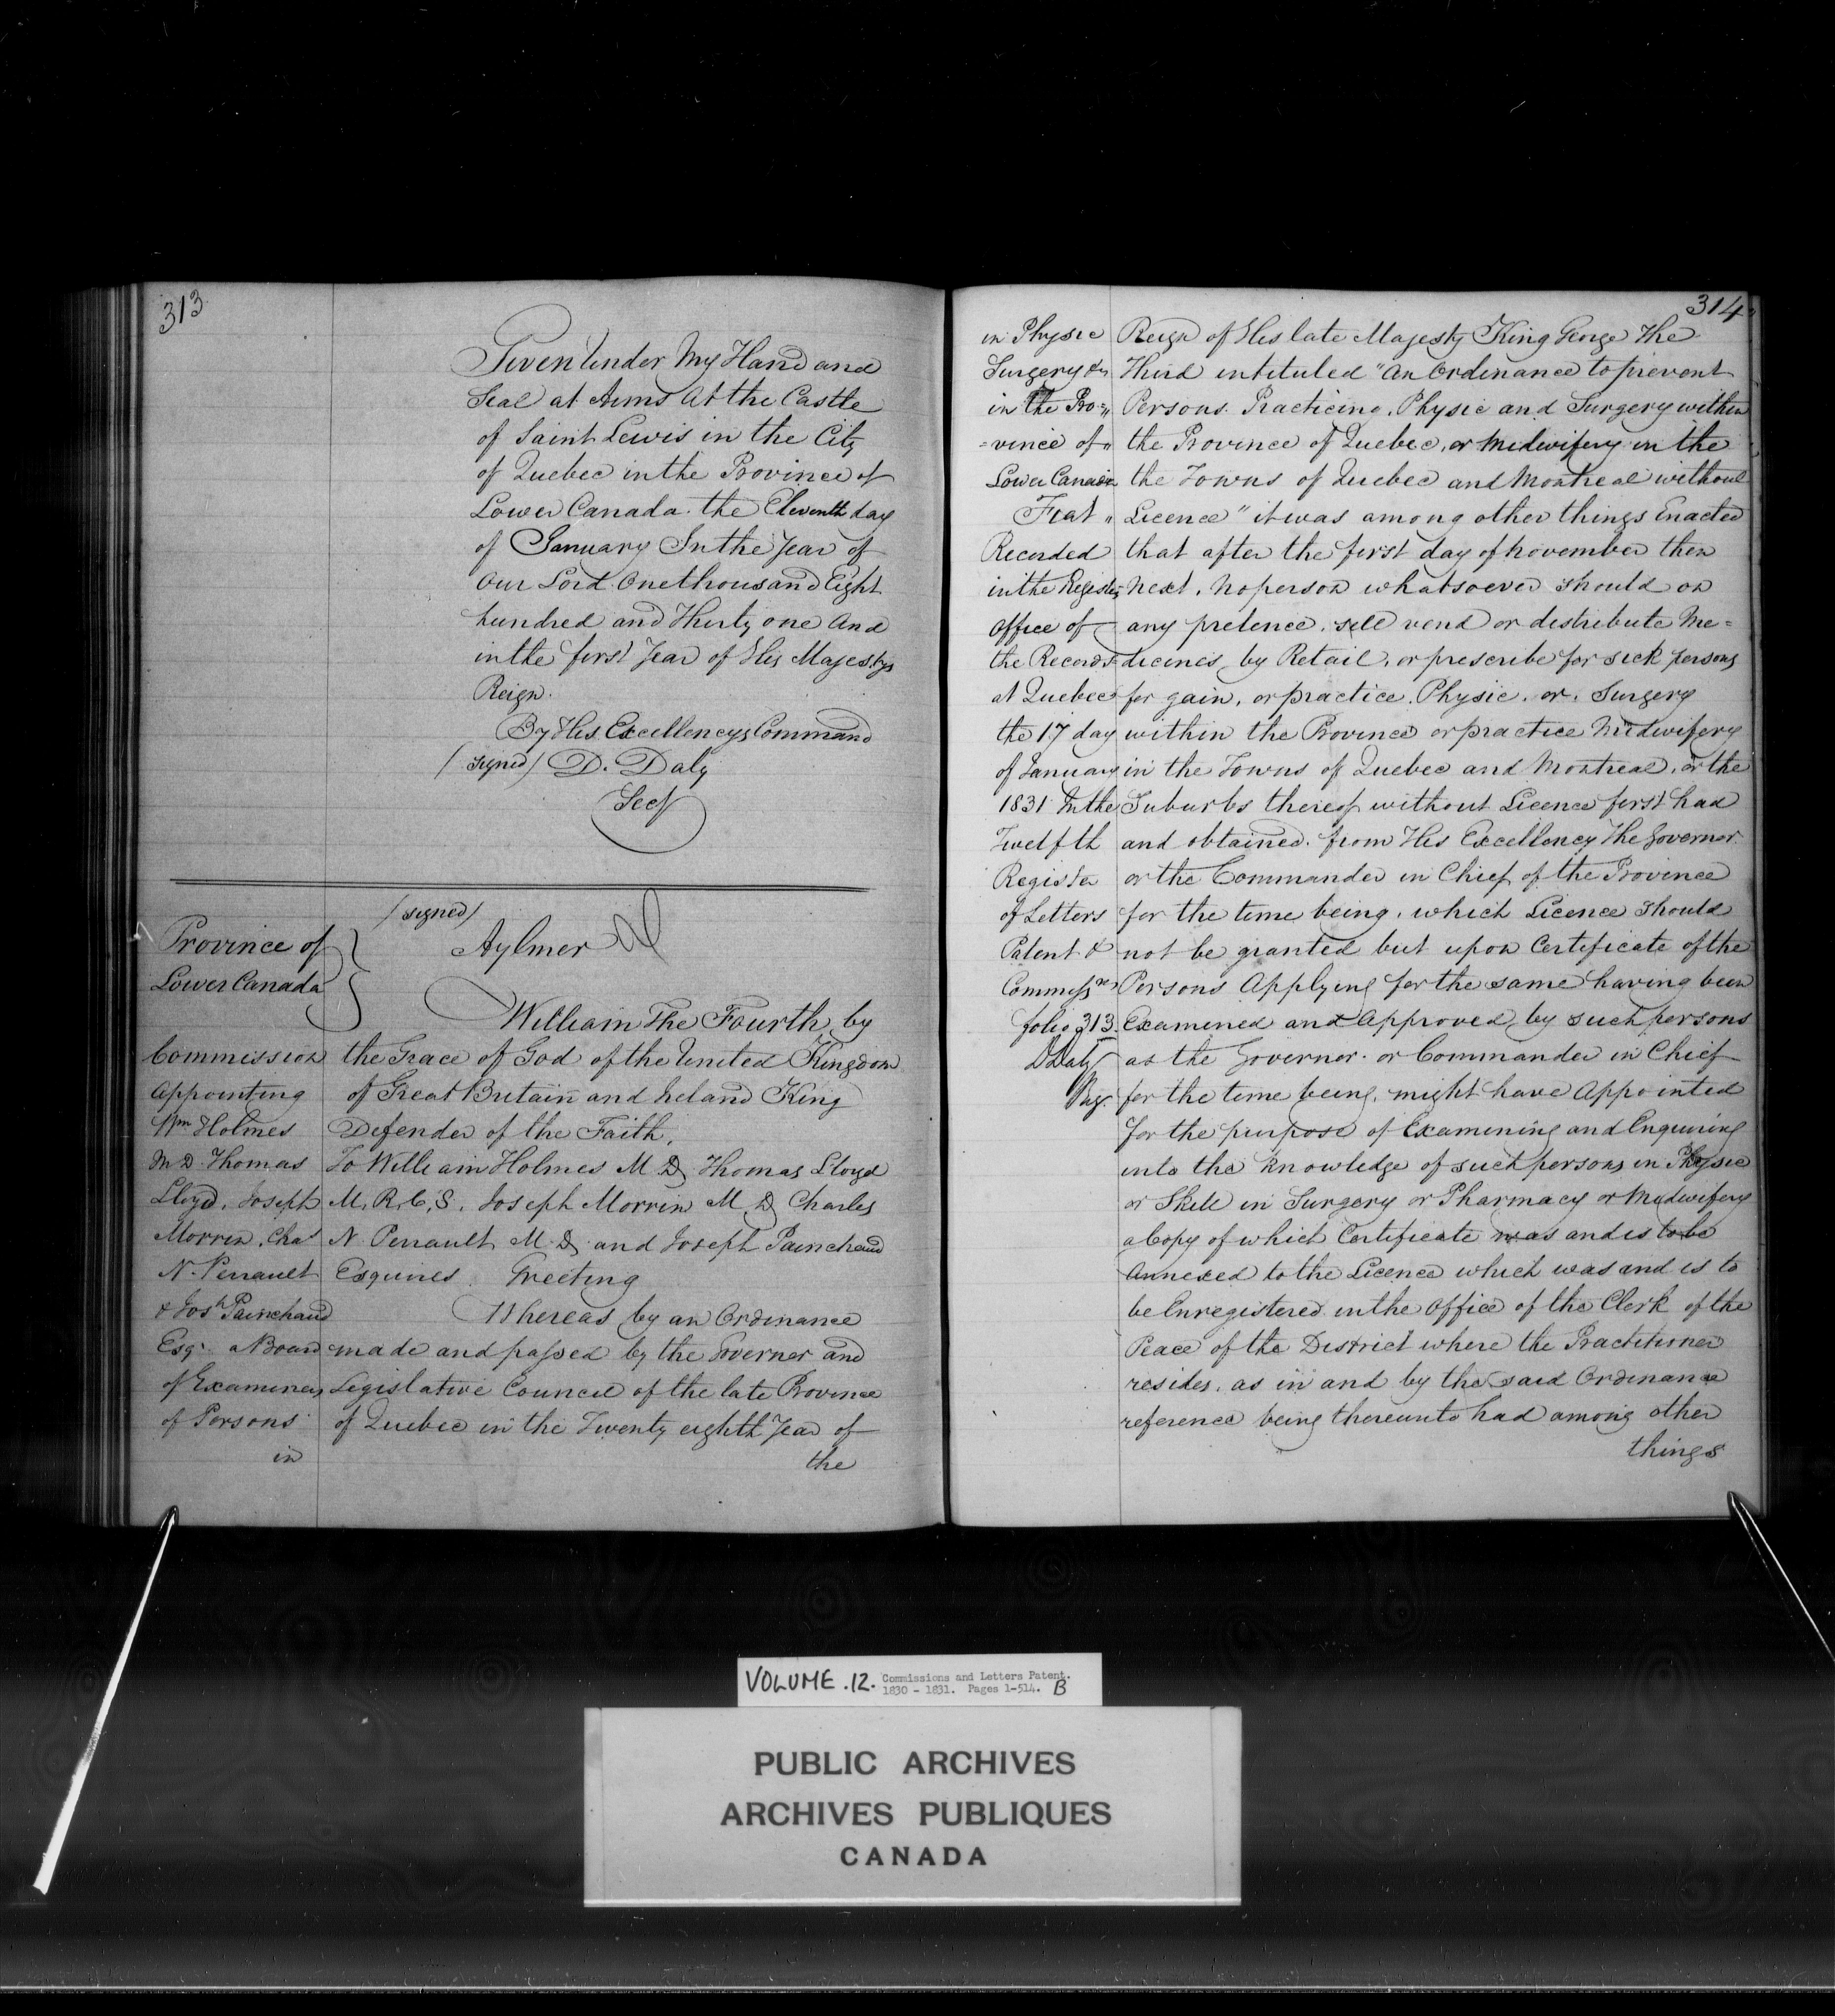 313
Given Under My Hand and
Seal at Arms At the Castle
of Saint Lewis in the City
of Quebec in the Province of
Lower Canada the Eleventh day
of January In the Year of
Our Lord One thousand Eight
hundred and Thirty one And
in the first Year of His Majestys
Reign.
By His Excellencys Command
(signed) D. Daly
Secy
(signed)
Aylmer
Province of
Lower Canada
William The Fourth by
the Grace of God of the United Kingdom
of Great Britain and Ireland King
Defender of the Faith,
To William Holmes M D Thomas Lloyd
M, R, C, S, Joseph Morrin M D Charles
N Perrault M D and Joseph Painchaud
Esquires Greeting
Whereas by an Ordinance
made and passed by the Governor and
Legislative Council of the late Province
of Quebec in the Twenty eighth Year of
the
Commission
Appointing
Wm Holmes
M D Thomas
Lloyd, Joseph
Morrin, Chas
N. Perrault
& Josh Painchaud
Esqr a Board
of Examiners
of Persons
in
314
in Physic
Surgery &c
in the Pro=
=vince of
Lower Canada
Fiat
Recorded
in the Registers
Office of
the Records
at Quebec
the 17 day
of January
1831 In the
Twelfth
Register
of Letters
Patent &
Commissns
folio 313
D Daly
Reg.
Reign of His late Majesty King George The
Third intituled "An Ordinance to prevent
Persons Practicing, Physic and Surgery within
the Province of Quebec, or Midwifery in the
the Towns of Quebec and Montreal without
Licence" it was among other things Enacted
that after the first day of November then
next, no person whatsoever should on
any pretence, sell vend or distribute Me=
dicines, by Retail, or prescribe for sick persons
for gain, or practice Physic, or Surgery
within the Province or practice Midwifery
in the Towns of Quebec and Montreal, or the
Suburbs thereof without Licence first had
and obtained from His Excellency The Governor
or the Commander in Chief of the Province
for the time being, which Licence should
not be granted but upon Certificate of the
Persons Applying for the same having been
Examined and Approved, by such persons
as the Governor or Commander in Chief
for the time being, might have Appointed
for the purpose of Examining and Enquiring
into the Knowledge of such persons in Physic
or Skill in Surgery or Pharmacy or Midwifery
a Copy of which Certificate was and is to be
Annexed to the Licence which was and is to
be Enregistered in the Office of the Clerk of the
Peace of the District where the Practitioner
resides, as in and by the said Ordinance
reference being thereunto had among other
things
VOLUME .12. Commissions and Letters Patent.
1830 - 1831. Pages 1-514. B
PUBLIC ARCHIVES
ARCHIVES PUBLIQUES
CANADA